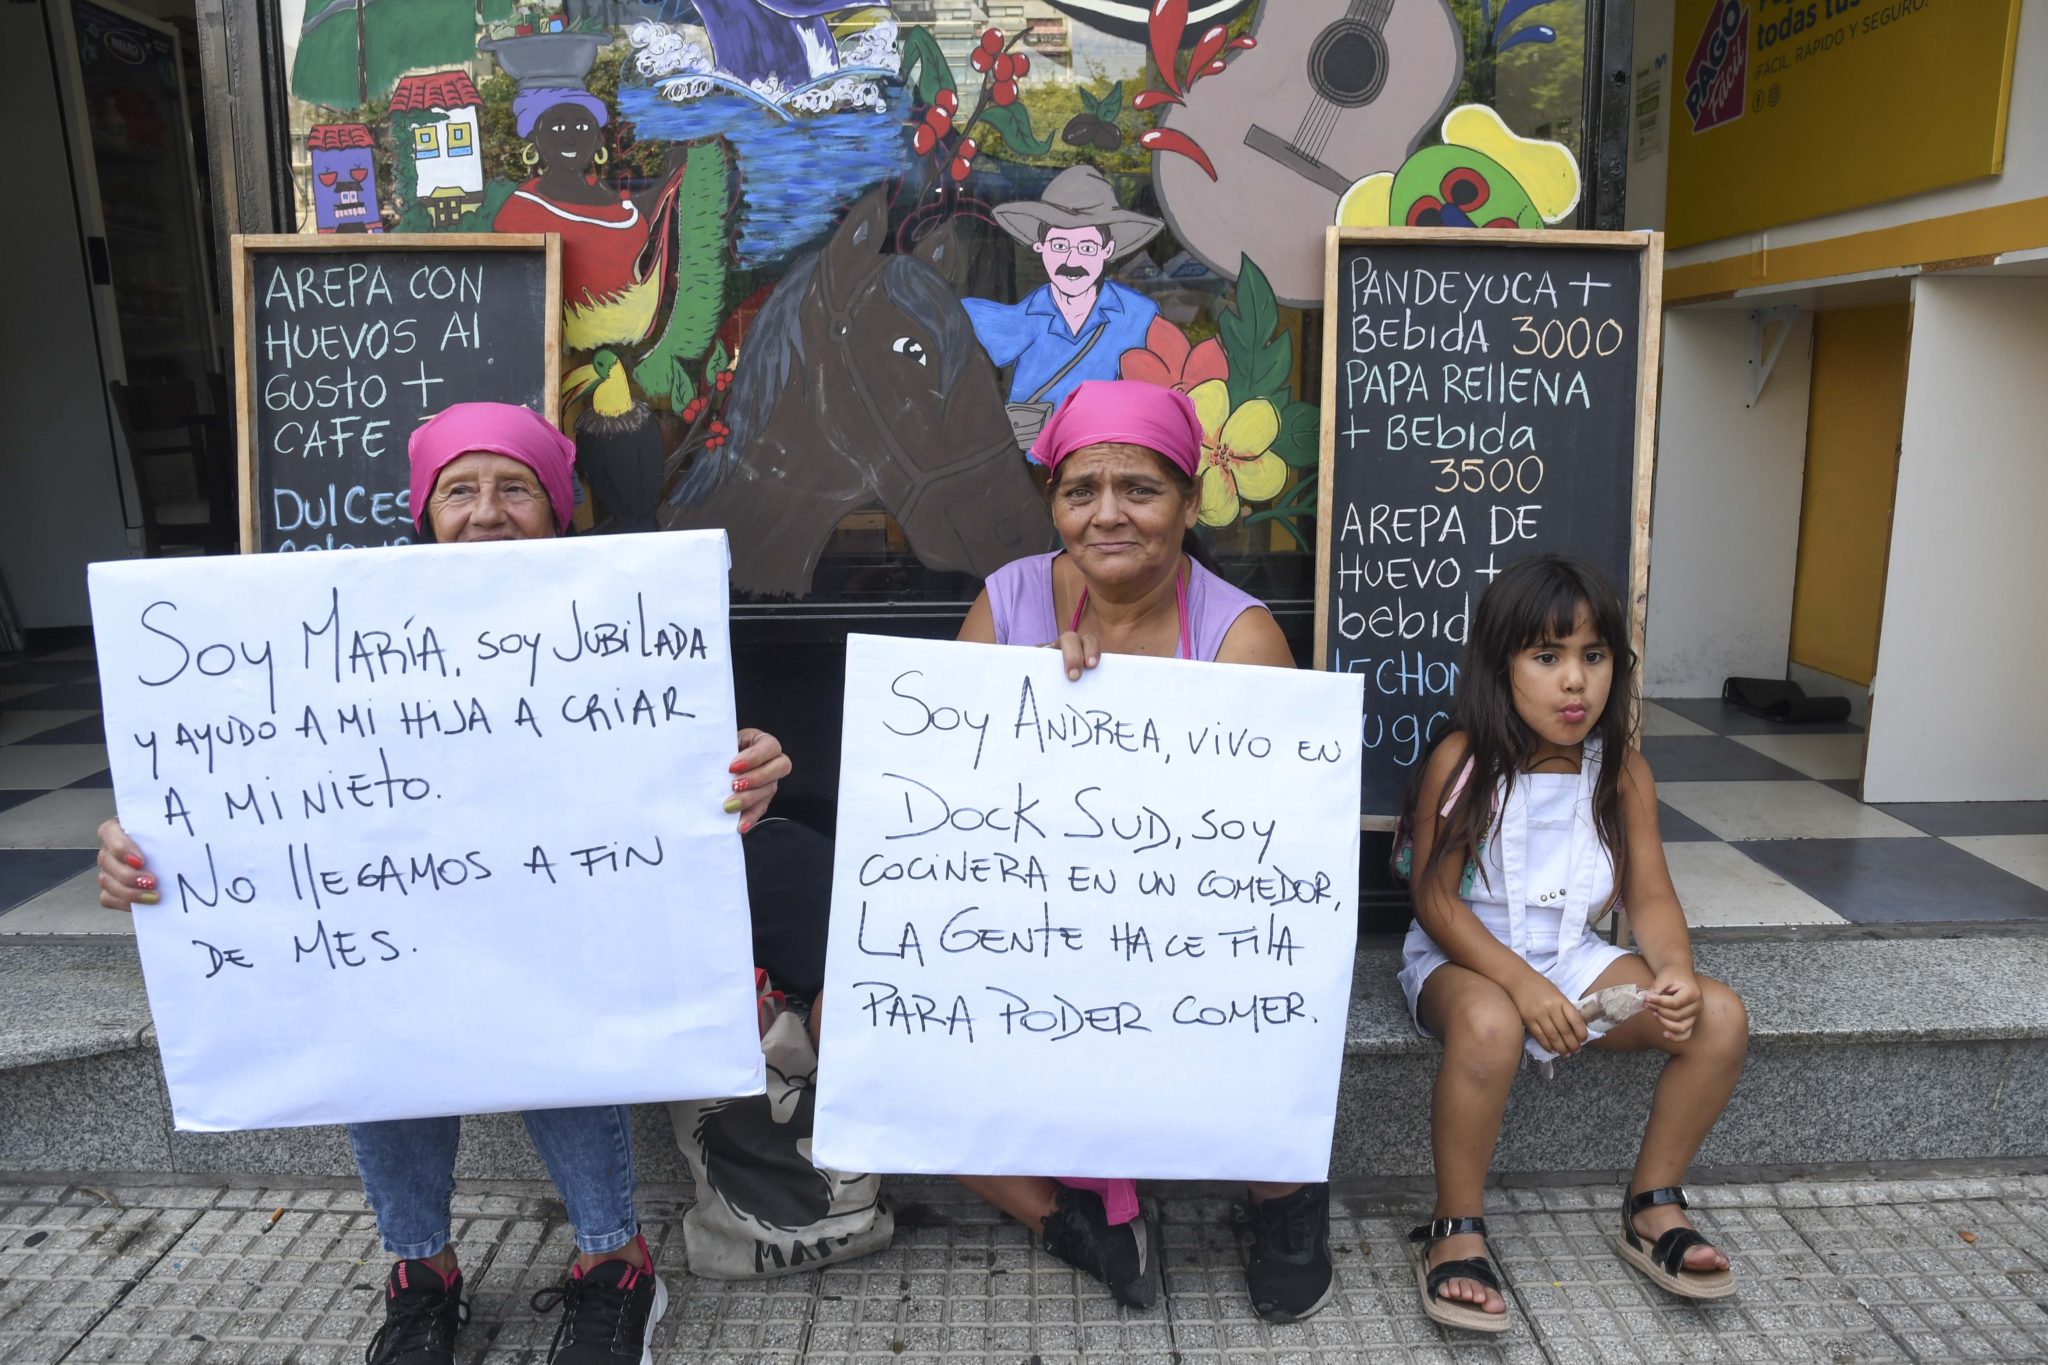 AREPA CON
HUEVOS Al
GUSTO +
CAFE
DULCES
PANDEYUCA +
BEbIdA 3000
PAPA REllENA
+ BEbIda
3500
AREPA DE
HUEVO +
bebid
lECHON
PAGO
FÁCIL
todas tus
¡FÁCIL, RÁPIDO Y SEGURO!
SOY MARÍA, SOY JUBILADA
Y AYUDO A MI HIJA A CRIAR
A MI NIETO.
NO llEGAMOS A FIN
DE MES.
SOY ANDREA, VIVO EN
DOCK SUD, SOY
COCINERA EN UN COMEDOR,
LA GENTE HACE FILA
PARA PODER COMER.